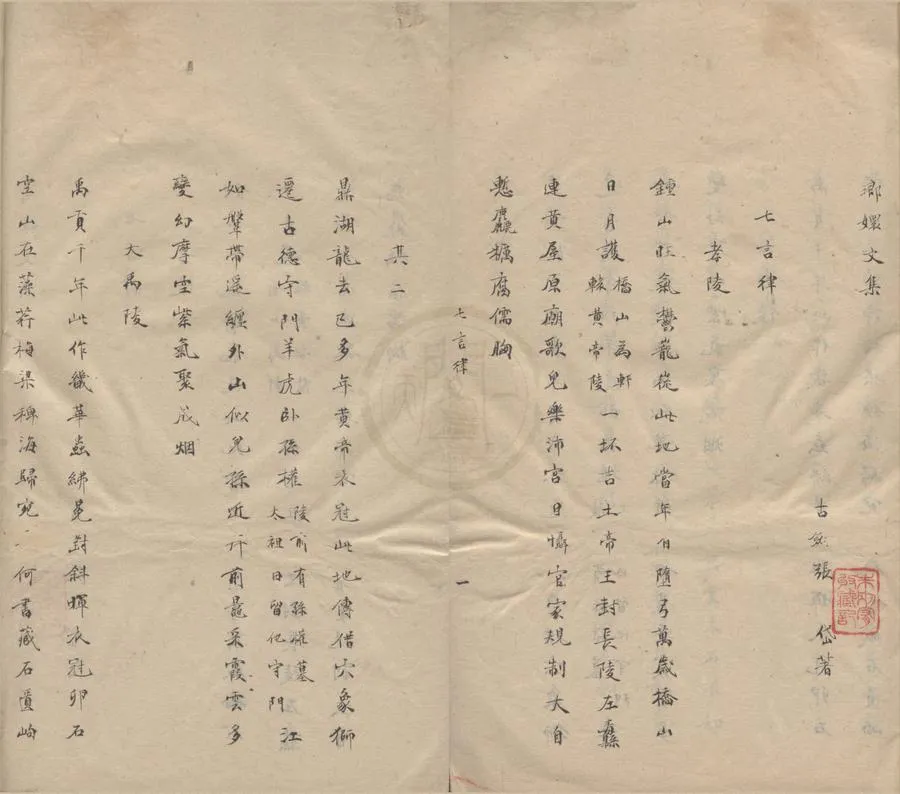 瑯嬛文集
古劍張岱著
七言律
孝陵
鍾山旺氣鬱蘢蓯此地當年自墮弓萬歲橋山
日月護橋山為軒轅黃帝陵一坏吉土帝王封長陵左纛
連黃屋原廟歌兒樂沛宮日懾官家規制大自
慙麤糲腐儒胸
七言律
一
其二
鼎湖龍去已多年黃帝衣冠此地傳借穴象獅
還古德守門羊虎臥孫權陵前有孫權墓太祖曰留他守門江
如鞶帶遥纏外山似兒孫近斤前鼂采霞雲多
變幻摩空紫氣聚成烟
大禹陵
禹貢千年此作巘華蟲紼冕對斜暉衣冠卵石
空山在藻荇梅梁稗海歸宛一何書藏石匱崎